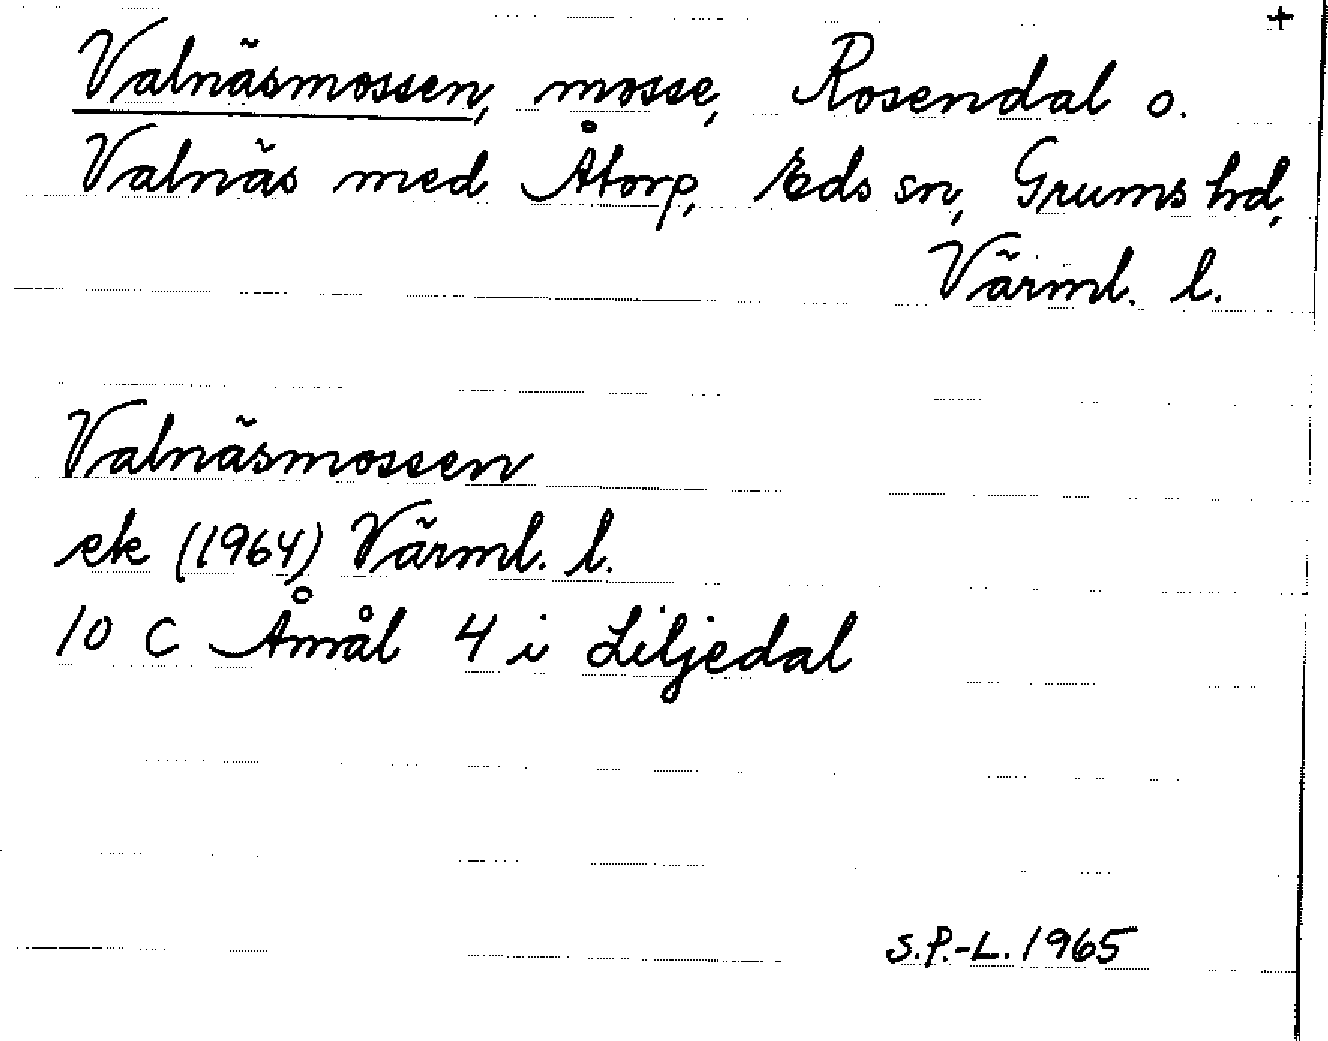 +
Valnäsmossen, mosse, Rosendal o.
Valnäs med Åtorp, Eds sn, Grums hd,
Värml. l.
Valnäsmossen
ek (1964) Värml. l.
10 C Åmål 4 i Liljedal
S.P.-L. 1965